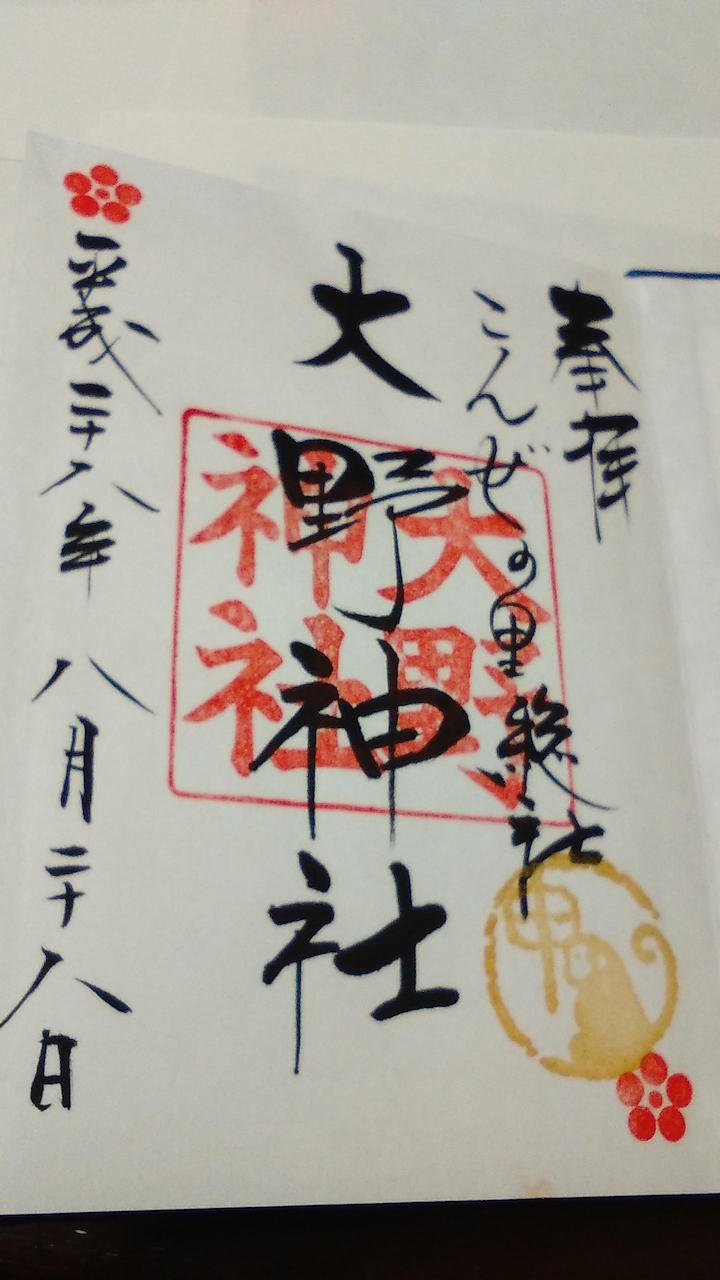 奉拝
こんぜの里総社
大野神社
大野
神社
申
平成二十八年八月二十八日